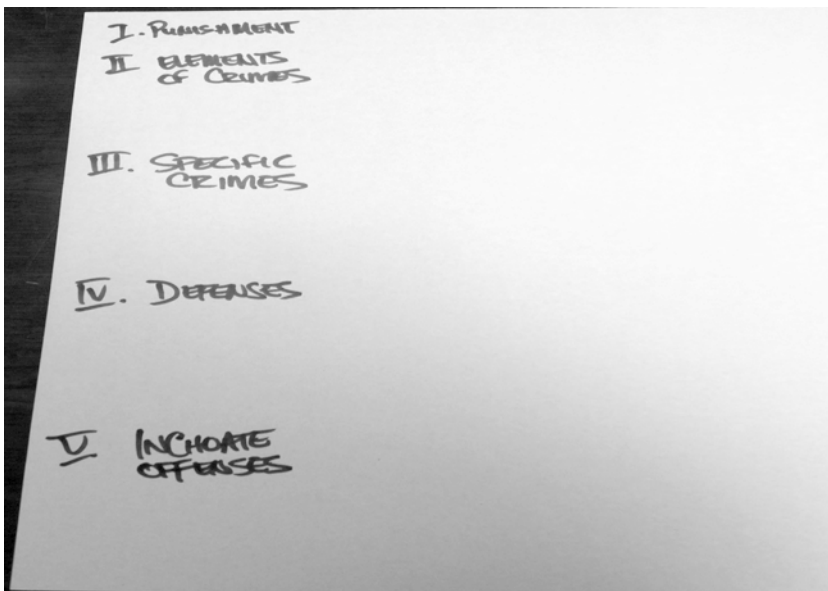 I. PUNISHMENT
II ELEMENTS
OF CRIMES
III. SPECIFIC
CRIMES
IV. DEFENSES
V INCHOATE
OFFENSES